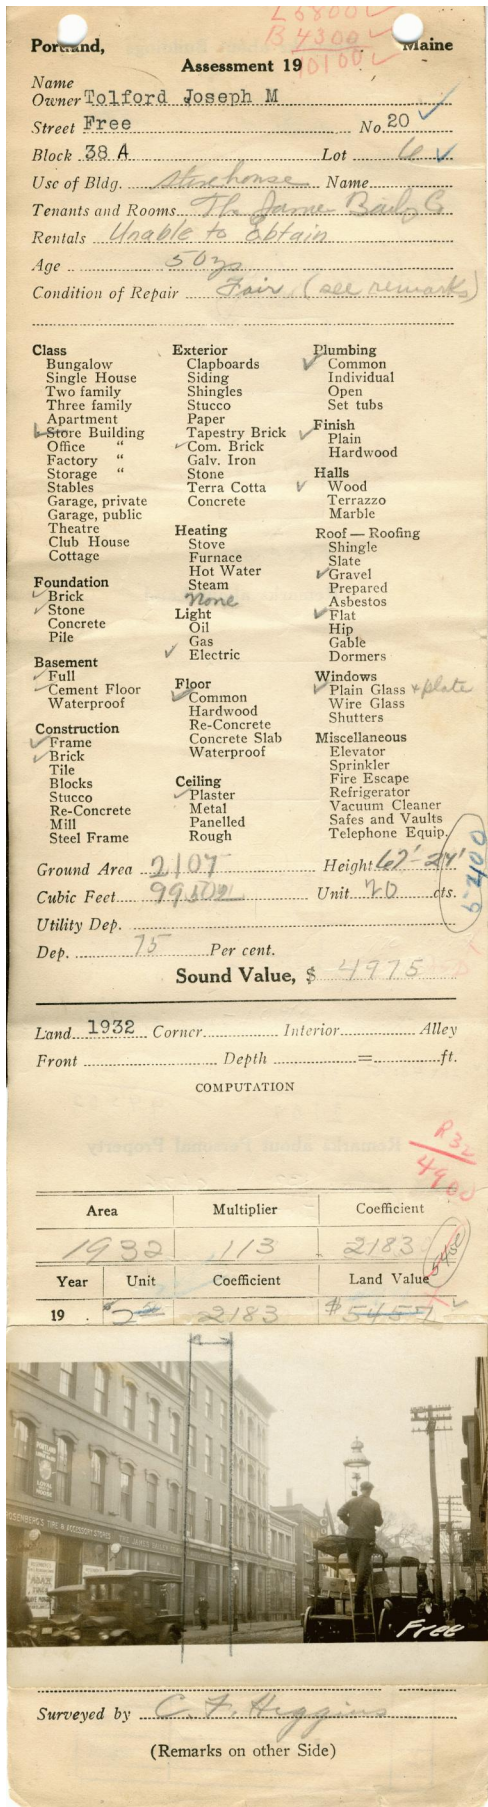 L 5800 ✓
B 4300 ✓
10100 ✓
Portland, Maine
Assessment 19
Name
Owner Tolford Joseph M
Street Free No. 20 ✓
Block 38 A Lot 6 ✓
Use of Bldg. storehouse Name
Tenants and Rooms The James Baily Co
Rentals Unable to Obtain
Age 50 yrs
Condition of Repair Fair (see remarks)
Class
Bungalow
Single House
Two family
Three family
Apartment
✓ Store Building
Office "
Factory "
Storage "
Stables
Garage, private
Garage, public
Theatre
Club House
Cottage
Foundation
✓ Brick
✓ Stone
Concrete
Pile
Basement
✓ Full
✓ Cement Floor
Waterproof
Construction
✓ Frame
✓ Brick
Tile
Blocks
Stucco
Re-Concrete
Mill
Steel Frame
Exterior
Clapboards
Siding
Shingles
Stucco
Paper
Tapestry Brick
✓ Com. Brick
Galv. Iron
Stone
Terra Cotta
Concrete
Heating
Stove
Furnace
Hot Water
Steam
None
Light
Oil
Gas
✓ Electric
Floor
✓ Common
Hardwood
Re-Concrete
Concrete Slab
Waterproof
Ceiling
✓ Plaster
Metal
Panelled
Rough
Plumbing
✓ Common
Individual
Open
Set tubs
Finish
✓ Plain
Hardwood
Halls
✓ Wood
Terrazzo
Marble
Roof — Roofing
Shingle
Slate
✓ Gravel
Prepared
Asbestos
✓ Flat
Hip
Gable
Dormers
Windows
✓ Plain Glass + plate
Wire Glass
Shutters
Miscellaneous
Elevator
Sprinkler
Fire Escape
Refrigerator
Vacuum Cleaner
Safes and Vaults
Telephone Equip.
Ground Area 2107 Height 67'-27'
Cubic Feet Unit 20 cts.
Utility Dep.
Dep. 75 Per cent.
Sound Value, $ 4975
Land 1932 Corner Interior Alley
Front Depth = ft.
COMPUTATION
R32
4900
Area Multiplier Coefficient
1932 113 2183
5450
Year Unit Coefficient Land Value
19 . 2183 $5457 ✓
ROSENBERG'S TIRE & ACCESSORY STORES
THE JAMES BAILEY
Free
Surveyed by C. F. Higgins
(Remarks on other Side)